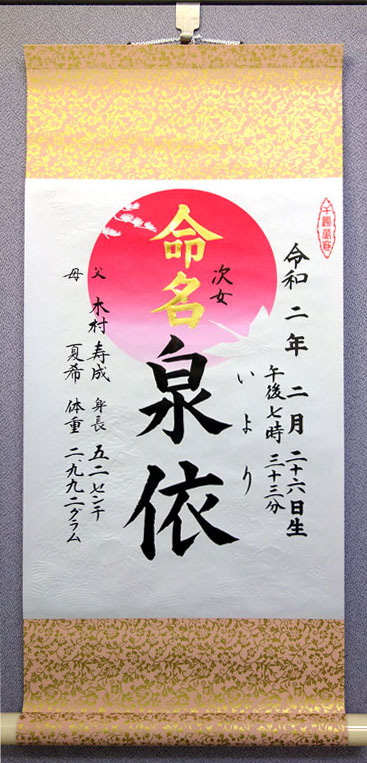 令和二年 二月 二十六日生
午後七時 三十三分
次女
いより
命名
泉依
父 木村 寿成 身長 五二センチ
母 夏希 体重 二、九九二グラム